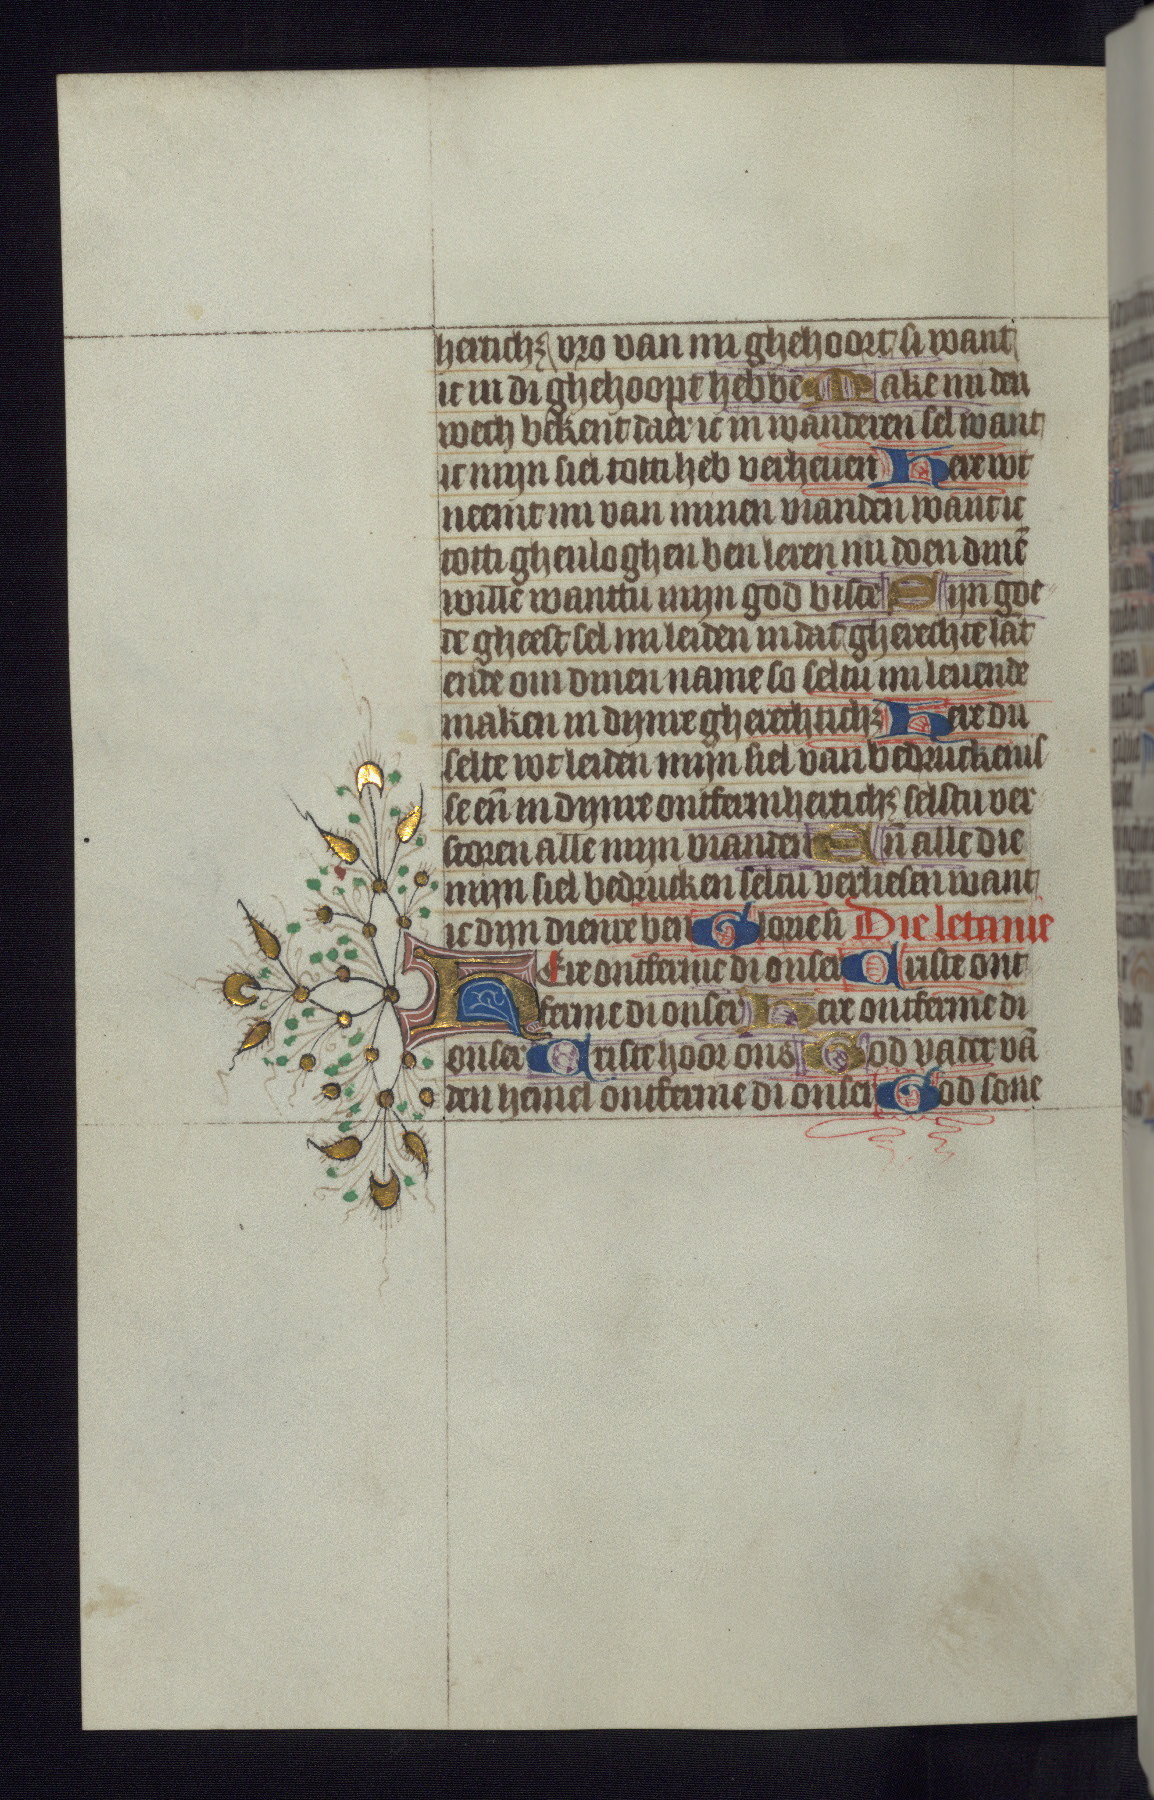 herticheȝ vro van mi ghehoort si want
ic in di ghehoopt hebbe Make mi den
wech bekent daer ic in wanderen sel want
ic mijn siel totti heb verheuen Here wt
neemt mi van minen vianden want ic
totti gheuloghen ben leren mi doen dinē
wille wanttu mijn god biste Dijn goe
de gheest sel mi leiden in dat gherechte lāt
ende om dinen name so seltu mi leuende
maken in dijnre gherechticheȝ Here du
selte wt leiden mijn siel van bedruckenis
se eñ in dijnre ontfermherticheȝ selstu ver
storen alle mijn vianden Eñ alle die
mijn siel bedrucken seltu verliesen want
ic dijn dienre ben Glorie si Die letanie
HEre ontferme di onser Criste ont
ferme di onser Here ontferme di
onser Criste hoor ons God vader vā
den hemel ontferme di onser God sone